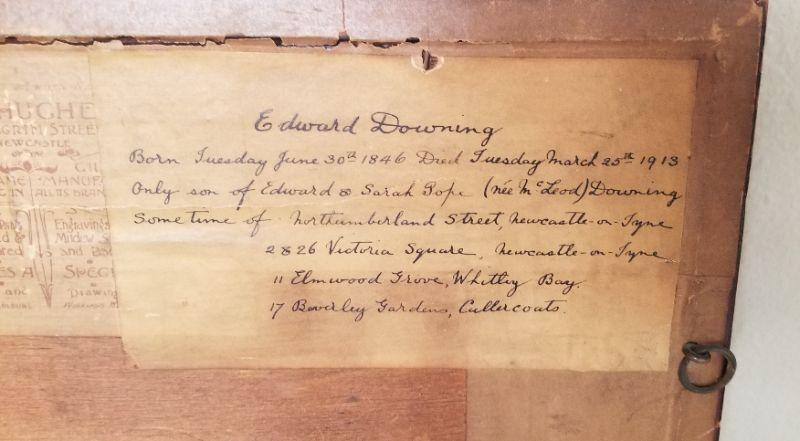 Edward Downing
Born Tuesday June 30th 1846 Died Tuesday March 25th 1913
Only son of Edward & Sarah Pope (née McLeod) Downing
Sometime of Northumberland Street, Newcastle-on-Tyne
2 & 26 Victoria Square, Newcastle-on-Tyne
11 Elmwood Grove, Whitley Bay.
17 Beverley Gardens, Cullercoats.
HUGHE
GRIM STREE
NEWCASTLE
ON
MANUF
ALL ITS BRAN
Engraving
Mildew S
and
SPECI
Drawin